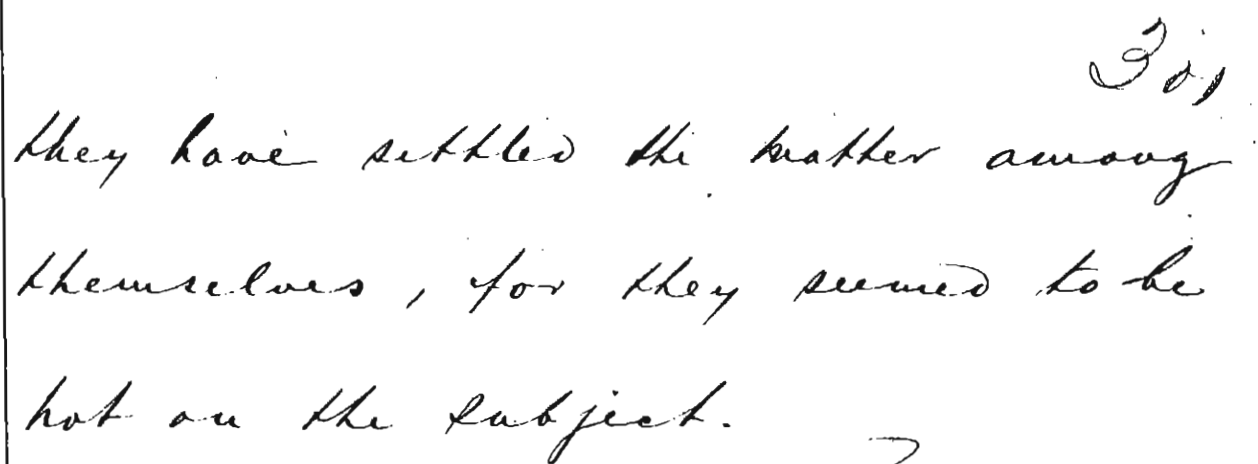 they have settled the matter among
themselves, for they seemed to be
hot on the subject.